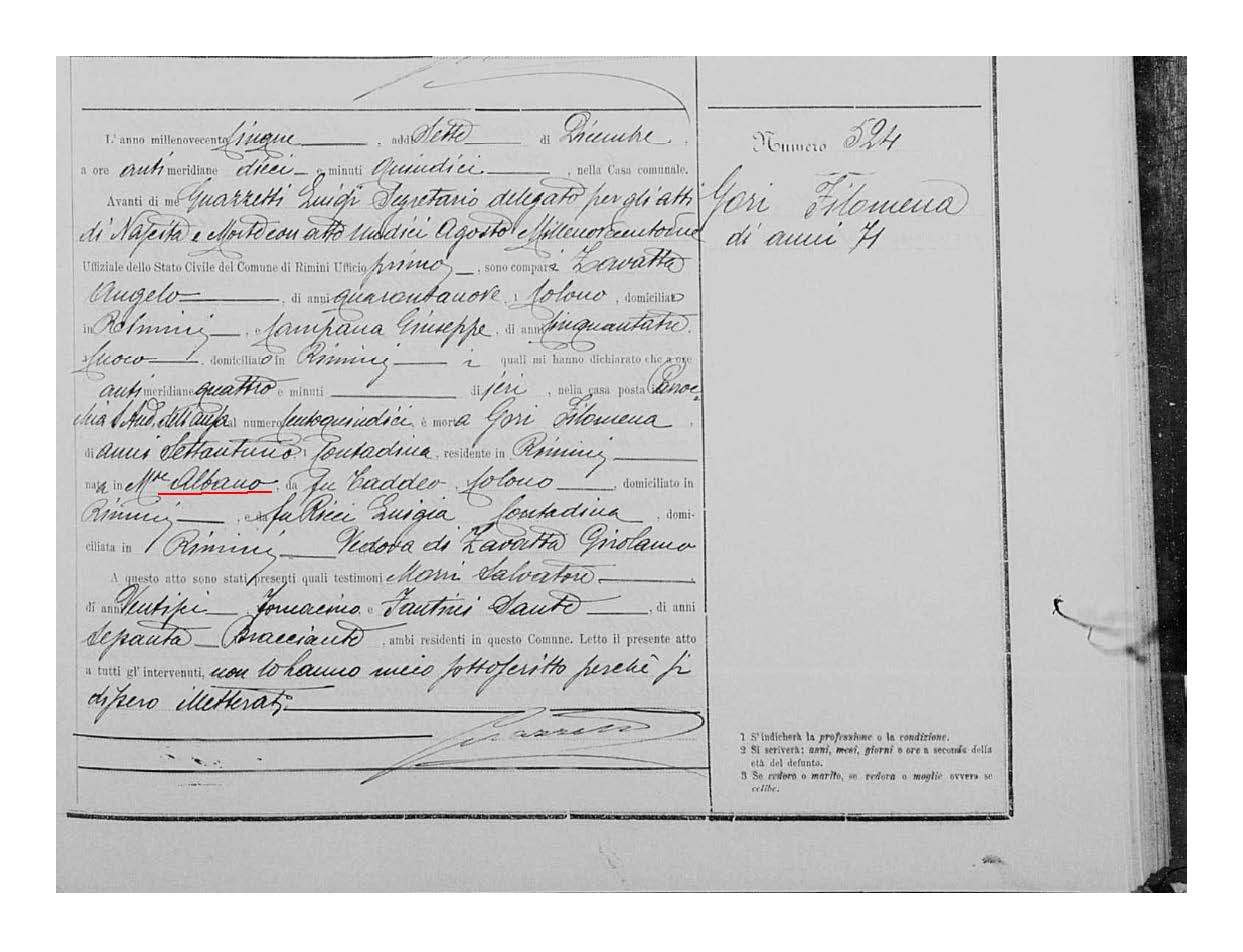 L' anno millenovecento cinque , addì Sette di Dicembre ,
a ore anti meridiane dieci e minuti quindici , nella Casa comunale.
Avanti di me Guazzetti Luigi Segretario delegato per gli atti
di Nascita e Morte con atto Undici Agosto Millenovecentodue
Uffiziale dello Stato Civile del Comune di Rimini Ufficio primo , sono comparsi Zavatta
Angelo , di anni quarantanove , 1 Colono , domiciliato
in Rimini , e Campana Giuseppe , di anni cinquantatre
Cuoco domiciliato in Rimini i quali mi hanno dichiarato che a ore
anti meridiane quattro e minuti di jeri , nella casa posta in Parroc=
chia S And. dell'Ausa al numero centoquindici è morta Gori Filomena ,
di anni Settantuno , Contadina , residente in Rimini
nata in Mte Albano , da fu Taddeo , Colono , domiciliato in
Rimini , e da fu Ricci Luigia Contadina , domi-
ciliata in Rimini Vedova di Zavatta Girolamo
A questo atto sono stati presenti quali testimoni Morri Salvatore ,
di anni Ventisei Fornacino e Fantini Sante , di anni
Sessanta Bracciante , ambi residenti in questo Comune. Letto il presente atto
a tutti gl' intervenuti, non lo hanno meco sottoscritto perchè si
dissero illetterati.
Guazzetti
Numero 524
Gori Filomena
di anni 71
1 S'indicherà la professione o la condizione.
2 Si scriverà: anni, mesi, giorni o ore a seconda della
età del defunto.
3 Se vedovo o marito, se vedova o moglie ovvero se
celibe.